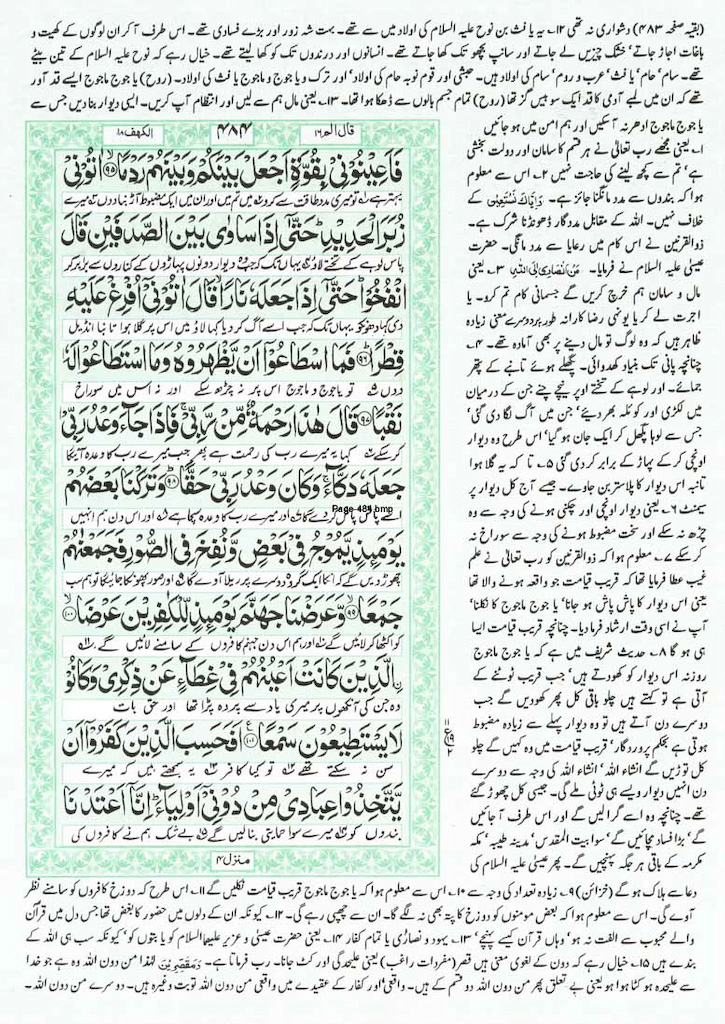 (بقیہ صفحہ ۴۸۳) دشواری نہ تھی ۱۲۔ یہ یافث بن نوح علیہ السلام کی اولاد میں سے تھے۔ بہت شہ زور اور بڑے فسادی تھے۔ اس طرف آ کر ان لوگوں کے کھیت و
باغات اجاڑ جاتے' خشک چیزیں لے جاتے اور سانپ بچھو تک کھا جاتے تھے۔ انسانوں اور درندوں تک کو کھا لیتے تھے۔ خیال رہے کہ نوح علیہ السلام کے تین بیٹے
تھے۔ سام' حام' یافث' عرب و روم' سام کی اولاد ہیں۔ حبشی اور قوم نوبہ حام کی اولاد' اور ترک و یاجوج و ماجوج یافث کی اولاد۔ (روح) یاجوج ماجوج ایسے قد آور
تھے کہ ان میں لمبے آدمی کا قد ایک سو بیس گز تھا (روح) تمام جسم بالوں سے ڈھکا ہوا تھا۔ ۱۳۔ یعنی مال ہم سے لیں اور انتظام آپ کریں۔ ایسی دیوار بنا دیں جس سے
یاجوج ماجوج ادھر نہ آ سکیں اور ہم امن میں ہو جائیں
۱۔ یعنی مجھے رب تعالیٰ نے ہر قسم کا سامان اور دولت بخشی
ہے' تم سے کچھ لینے کی حاجت نہیں ۲۔ اس سے معلوم
ہوا کہ بندوں سے مدد مانگنا جائز ہے۔ وَاِیَّاکَ نَسْتَعِیْنُ کے
خلاف نہیں۔ اللہ کے مقابل مددگار ڈھونڈنا شرک ہے۔
ذوالقرنین نے اس کام میں رعایا سے مدد مانگی۔ حضرت
عیسیٰ علیہ السلام نے فرمایا۔ مَنْ اَنْصَارِیْ اِلَی اللہِ ۳۔ یعنی
مال و سامان ہم خرچ کریں گے جسمانی کام تم کرو۔ یا
اجرت لے کر یا یونہی رضا کارانہ طور پر دوسرے معنی زیادہ
ظاہر ہیں کہ وہ لوگ تو مال دینے پر بھی آمادہ تھے۔ ۴۔
چنانچہ پانی تک بنیاد کھدوائی۔ پگھلے ہوئے تانبے کے پتھر
جمائے۔ اور لوہے کے تختے اوپر نیچے چنے جن کے درمیان
میں لکڑی اور کوئلہ بھر دیئے' جن میں آگ لگا دی گئی'
جس سے لوہا پگھل کر ایک جان ہو گیا' اس طرح وہ دیوار
اونچی کر کے پہاڑ کے برابر کر دی گئی ۵۔ تا کہ یہ گلا ہوا
تانبہ اس دیوار کا پلاستر بن جاوے۔ جیسے آج کل دیوار پر
سیمنٹ ۶۔ یعنی دیوار اونچی اور چکنی ہونے کی وجہ سے وہ
چڑھ نہ سکے اور سخت مضبوط ہونے کی وجہ سے سوراخ نہ
کر سکے ۷۔ معلوم ہوا کہ ذوالقرنین کو رب تعالیٰ نے علم
غیب عطا فرمایا تھا کہ قریب قیامت جو واقعہ ہونے والا تھا
یعنی اس دیوار کا پاش پاش ہو جانا' یاجوج ماجوج کا نکلنا'
آپ نے اسی وقت ارشاد فرما دیا۔ چنانچہ قریب قیامت ایسا
ہی ہو گا ۸۔ حدیث شریف میں ہے کہ یاجوج ماجوج
روزانہ اس دیوار کو کھودتے ہیں' جب قریب ٹوٹنے کے
آتی ہے تو کہتے ہیں چلو باقی کل پھر کھودیں گے جب
دوسرے دن آتے ہیں تو وہ دیوار پہلے سے زیادہ مضبوط
ہوتی ہے بحکم پروردگار' قریب قیامت میں وہ کہیں گے چلو
کل توڑیں گے انشاء اللہ' انشاء اللہ کی وجہ سے دوسرے
دن انہیں دیوار ویسی ہی ٹوٹی ملے گی۔ جیسی کل چھوڑ گئے
تھے۔ چنانچہ وہ اسے گرا لیں گے اور اس طرف آ جائیں
گے' بڑا فساد مچائیں گے' سوا بیت المقدس' مدینہ طیبہ' مکہ
مکرمہ کے باقی ہر جگہ پہنچیں گے۔ پھر عیسیٰ علیہ السلام کی
قال الم ۱۶ ۴۸۴ الکہف ۱۸
فَاَعِیْنُوْنِیْ بِقُوَّةٍ اَجْعَلْ بَیْنَكُمْ وَبَیْنَهُمْ رَدْمًا ۙ﴿۹۵﴾ اٰتُوْنِیْ
بہتر ہے تو میری مدد طاقت سے کرو میں تم میں اور ان میں ایک مضبوط آڑ بنا دوں میرے
زُبَرَ الْحَدِیْدِ ؕ حَتّٰۤی اِذَا سَاوٰی بَیْنَ الصَّدَفَیْنِ قَالَ
پاس لوہے کے تختے لاؤ یہاں تک کہ جب وہ دیوار دونوں پہاڑوں کے کناروں سے برابر کر
انْفُخُوْا ؕ حَتّٰۤی اِذَا جَعَلَهٗ نَارًا ۙ قَالَ اٰتُوْنِیْۤ اُفْرِغْ عَلَیْهِ
دی کہا دھونکو یہاں تک کہ جب اسے آگ کر دیا کہا لاؤ میں اس پر گلا ہوا تانبا انڈیل
قِطْرًا ﴿۹۶﴾ فَمَا اسْطَاعُوْۤا اَنْ یَّظْهَرُوْهُ وَمَا اسْتَطَاعُوْا لَهٗ
دوں تو یاجوج و ماجوج اس پر نہ چڑھ سکے اور نہ اس میں سوراخ
نَقْبًا ﴿۹۷﴾ قَالَ هٰذَا رَحْمَةٌ مِّنْ رَّبِّیْ ۚ فَاِذَا جَآءَ وَعْدُ رَبِّیْ
کر سکے کہا یہ میرے رب کی رحمت ہے پھر جب میرے رب کا وعدہ آئیگا
جَعَلَهٗ دَكَّآءَ ۚ وَكَانَ وَعْدُ رَبِّیْ حَقًّا ﴿۹۸﴾ وَتَرَكْنَا بَعْضَهُمْ
اسے پاش پاش کر دے گا اور میرے رب کا وعدہ سچا ہے اور اس دن ہم انہیں
Page 484.bmp
یَوْمَىِٕذٍ یَّمُوْجُ فِیْ بَعْضٍ وَّنُفِخَ فِی الصُّوْرِ فَجَمَعْنٰهُمْ
چھوڑ دیں گے کہ انکا ایک گروہ دوسرے پر ریلا آوے گا اور صور پھونکا جائیگا تو ہم سب
جَمْعًا ﴿۹۹﴾ وَّعَرَضْنَا جَهَنَّمَ یَوْمَىِٕذٍ لِّلْكٰفِرِیْنَ عَرْضًا ﴿۱۰۰﴾
کو اکٹھا کر لائیں گے اور ہم اس دن جہنم کافروں کے سامنے لائیں گے
الَّذِیْنَ كَانَتْ اَعْیُنُهُمْ فِیْ غِطَآءٍ عَنْ ذِكْرِیْ وَكَانُوْا
وہ جن کی آنکھوں پر میری یاد سے پردہ پڑا تھا اور حق بات
لَا یَسْتَطِیْعُوْنَ سَمْعًا ﴿۱۰۱﴾ اَفَحَسِبَ الَّذِیْنَ كَفَرُوْۤا اَنْ
سن نہ سکتے تھے تو کیا کافر یہ سمجھتے ہیں کہ میرے
یَّتَّخِذُوْا عِبَادِیْ مِنْ دُوْنِیْۤ اَوْلِیَآءَ ؕ اِنَّاۤ اَعْتَدْنَا
بندوں کو میرے سوا حمایتی بنا لیں گے بے شک ہم نے کافروں کی
منزل ۴
دعا سے ہلاک ہو گے (خزائن) ۹۔ زیادہ تعداد کی وجہ سے ۱۰۔ اس سے معلوم ہوا کہ یاجوج ماجوج قریب قیامت نکلیں گے ۱۱۔ اس طرح کہ دوزخ کافروں کو سامنے نظر
آوے گی۔ اس سے معلوم ہوا کہ بعض مومنوں کو دوزخ کا پتہ بھی نہ لگے گا۔ ان سے چھپی رہے گی۔ ۱۲۔ کیونکہ ان کے دلوں میں حضور کا بغض تھا جس دل میں قرآن
والے محبوب سے الفت نہ ہو' وہاں قرآن کیسے پہنچے' ۱۳۔ یہود و نصاریٰ یا تمام کفار ۱۴۔ یعنی حضرت عیسیٰ و عزیر علیہما السلام کو یا بتوں کو' کیونکہ سب ہی اللہ کے
بندے ہیں ۱۵۔ خیال رہے کہ دون کے لغوی معنی ہیں قصر (مفردات راغب) یعنی علیحدگی اور کٹ جانا۔ رب فرماتا ہے۔ وَمُقَصِّرِیْنَ لہٰذا من دون اللہ وہ ہے جو خدا
سے علیحدہ ہو کٹا ہوا ہو یعنی بے تعلق پھر من دون اللہ دو قسم کے ہیں۔ واقعی' اور کفار کے عقیدے میں واقعی من دون اللہ تو بت وغیرہ ہیں۔ دوسرے من دون اللہ۔